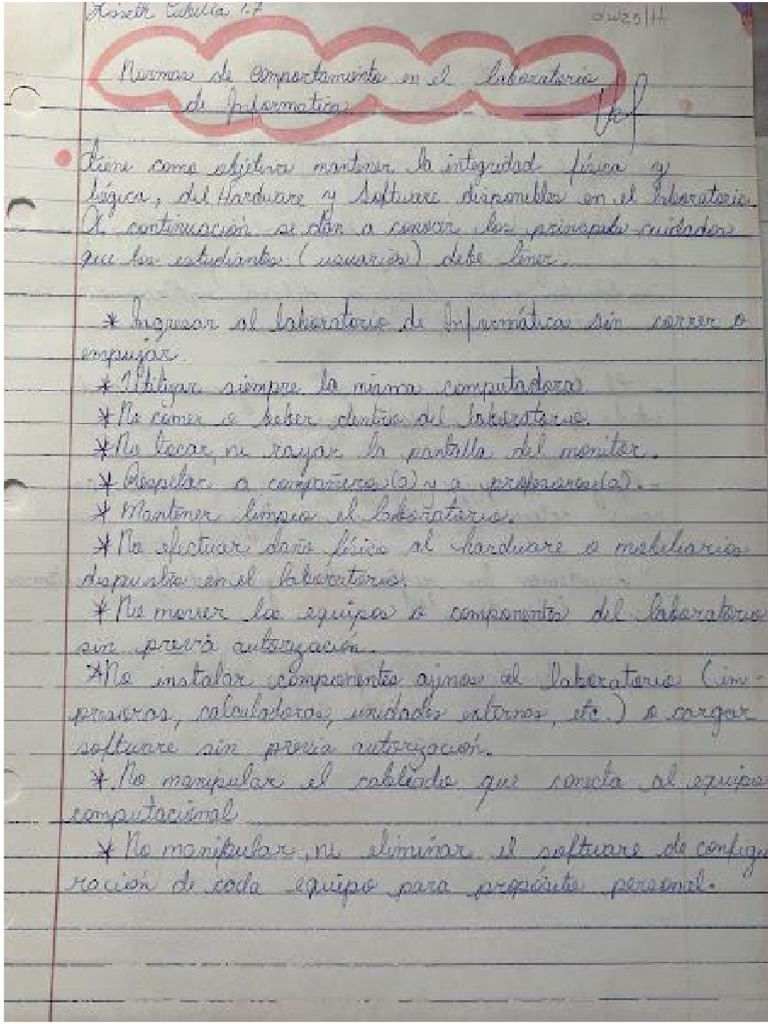 Lisseth Cubilla 1.7
Normas de comportamiento en el laboratorio
de Informática
Tiene como objetivo mantener la integridad física y
lógica, del Hardware y Software disponibles en el laboratorio.
A continuación se dan a conocer los principales cuidados
que los estudiantes (usuarios) debe tener.
* Ingresar al laboratorio de Informática sin correr o
empujar.
* Utilizar siempre la misma computadora
* No comer o beber dentro del laboratorio.
* No tocar, ni rayar la pantalla del monitor.
* Respetar a compañero(a) y a profesores(a).
* Mantener limpio el laboratorio.
* No efectuar daño físico al hardware o mobiliarios
dispuesto en el laboratorio.
* No mover los equipos o componentes del laboratorio
sin previa autorización.
* No instalar componentes ajenos al laboratorio (im-
presoras, calculadoras, unidades externos, etc.) o cargar
software sin previa autorización.
* No manipular el cableado que conecta al equipo
computacional
* No manipular, ni eliminar el software de config
ración de cada equipo para propósito personal.